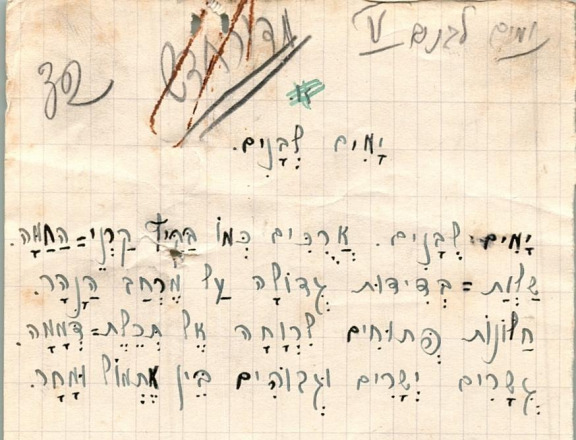 ימים לבנים V
יָמִים לְבָנִים.
יָמִים לְבָנִים. אֲרֻכִּים כְּמוֹ בַּקַּיִץ קַרְנֵי=הַחַמָּה.
שַׁלְוַת=בְּדִידוּת גְּדוֹלָה עַל מֶרְחַב הַנָּהָר.
חַלּוֹנוֹת פְּתוּחִים לִרְוָחָה אֶל תְּכֵלֶת=דְּמָמָה.
גְּשָׁרִים יְשָׁרִים וּגְבוֹהִים בֵּין אֶתְמוֹל וּמָחָר.